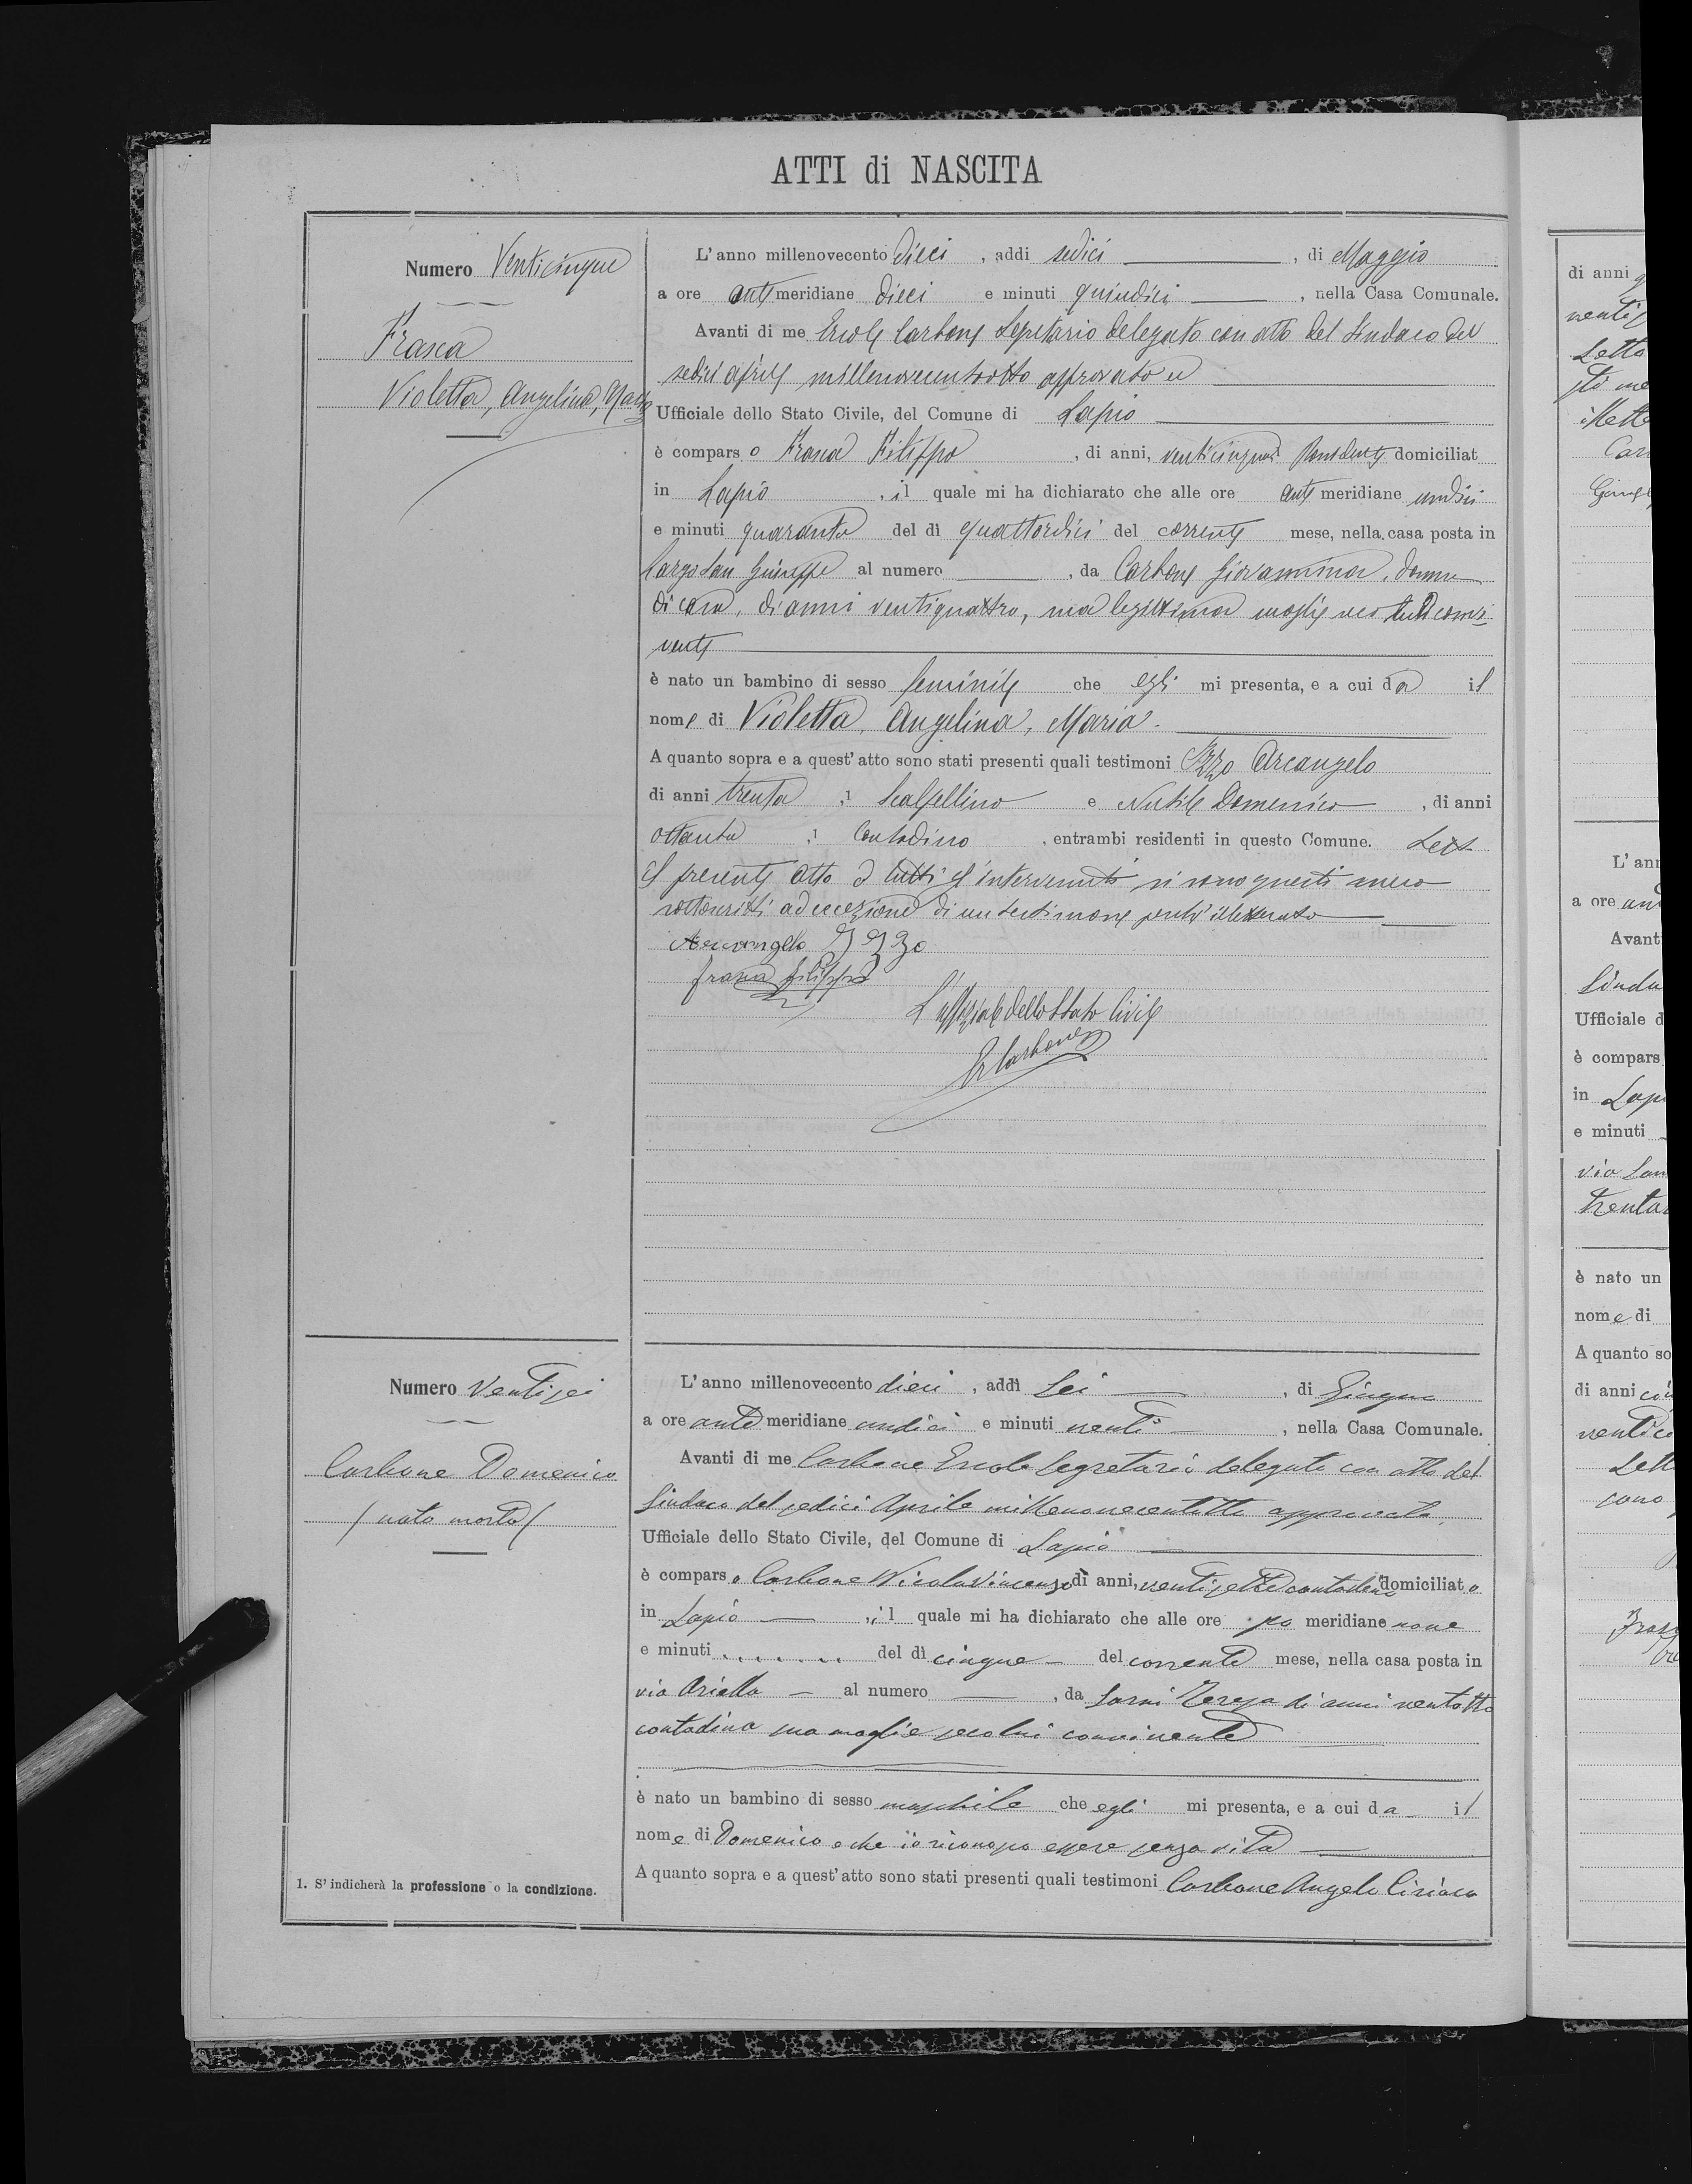 ATTI di NASCITA
Numero Venticinque
Frasca
Violetta, Angelina, Maria
L'anno millenovecento dieci, addi sedici, di Maggio
a ore anti meridiane dieci e minuti quindici, nella Casa Comunale.
Avanti di me Ercole Carbone Segretario delegato con atto del Sindaco del
sedici aprile millenovecentootto approvato
Ufficiale dello Stato Civile, del Comune di Lapio
è comparso Frasca Filippo, di anni, venticinque domiciliat
in Lapio, il quale mi ha dichiarato che alle ore ante meridiane undici
e minuti quaranta del dì quattordici del corrente mese, nella casa posta in
Largo San Giuseppe al numero, da Carbone Giovannina, donna
di casa, di anni ventiquattro, sua legittima moglie seco lui convi-
vente
è nato un bambino di sesso feminile che egli mi presenta, e a cui da il
nome di Violetta, Angelina, Maria.
A quanto sopra e a quest'atto sono stati presenti quali testimoni Izzo Arcangelo
di anni trenta, 1 Scalpellino e Nutile Domenico, di anni
ottanta, 1 Contadino, entrambi residenti in questo Comune. Letto
il presente atto a tutti gl'intervenuti si sono questi meco
sottoscritti ad eccezione di un testimone perchè illetterato
Arcangelo Izzo
Frasca Filippo
L'uffiziale dello Stato Civile
E Carbone
Numero Ventisei
Carbone Domenico
(nato morto)
L'anno millenovecento dieci, addì Sei, di Giugno
a ore ante meridiane undici e minuti venti, nella Casa Comunale.
Avanti di me Carbone Ercole Segretario delegato con atto del
Sindaco del sedici Aprile millenovecentotto approvato,
Ufficiale dello Stato Civile, del Comune di Lapio
è comparso Carbone Nicola Vincenzo di anni, ventisette contadino domiciliato
in Lapio, il quale mi ha dichiarato che alle ore po meridiane nove
e minuti ........ del dì cinque del corrente mese, nella casa posta in
via Oriella al numero, da Sarni Teresa di anni ventotto
contadina sua moglie seco lui convivente
è nato un bambino di sesso maschile che egli mi presenta, e a cui da il
nome di Domenico e che io riconosco essere senza vita
A quanto sopra e a quest'atto sono stati presenti quali testimoni Carbone Angelo Ciriaco
1. S'indicherà la professione o la condizione.
di anni
venti
Letto
sti me
Car
L'an
a ore an
Avant
Sinda
Ufficiale d
è compars
in Lapi
e minuti
via San
trenta
è nato un
nome di
A quanto so
di anni
Lett
sono